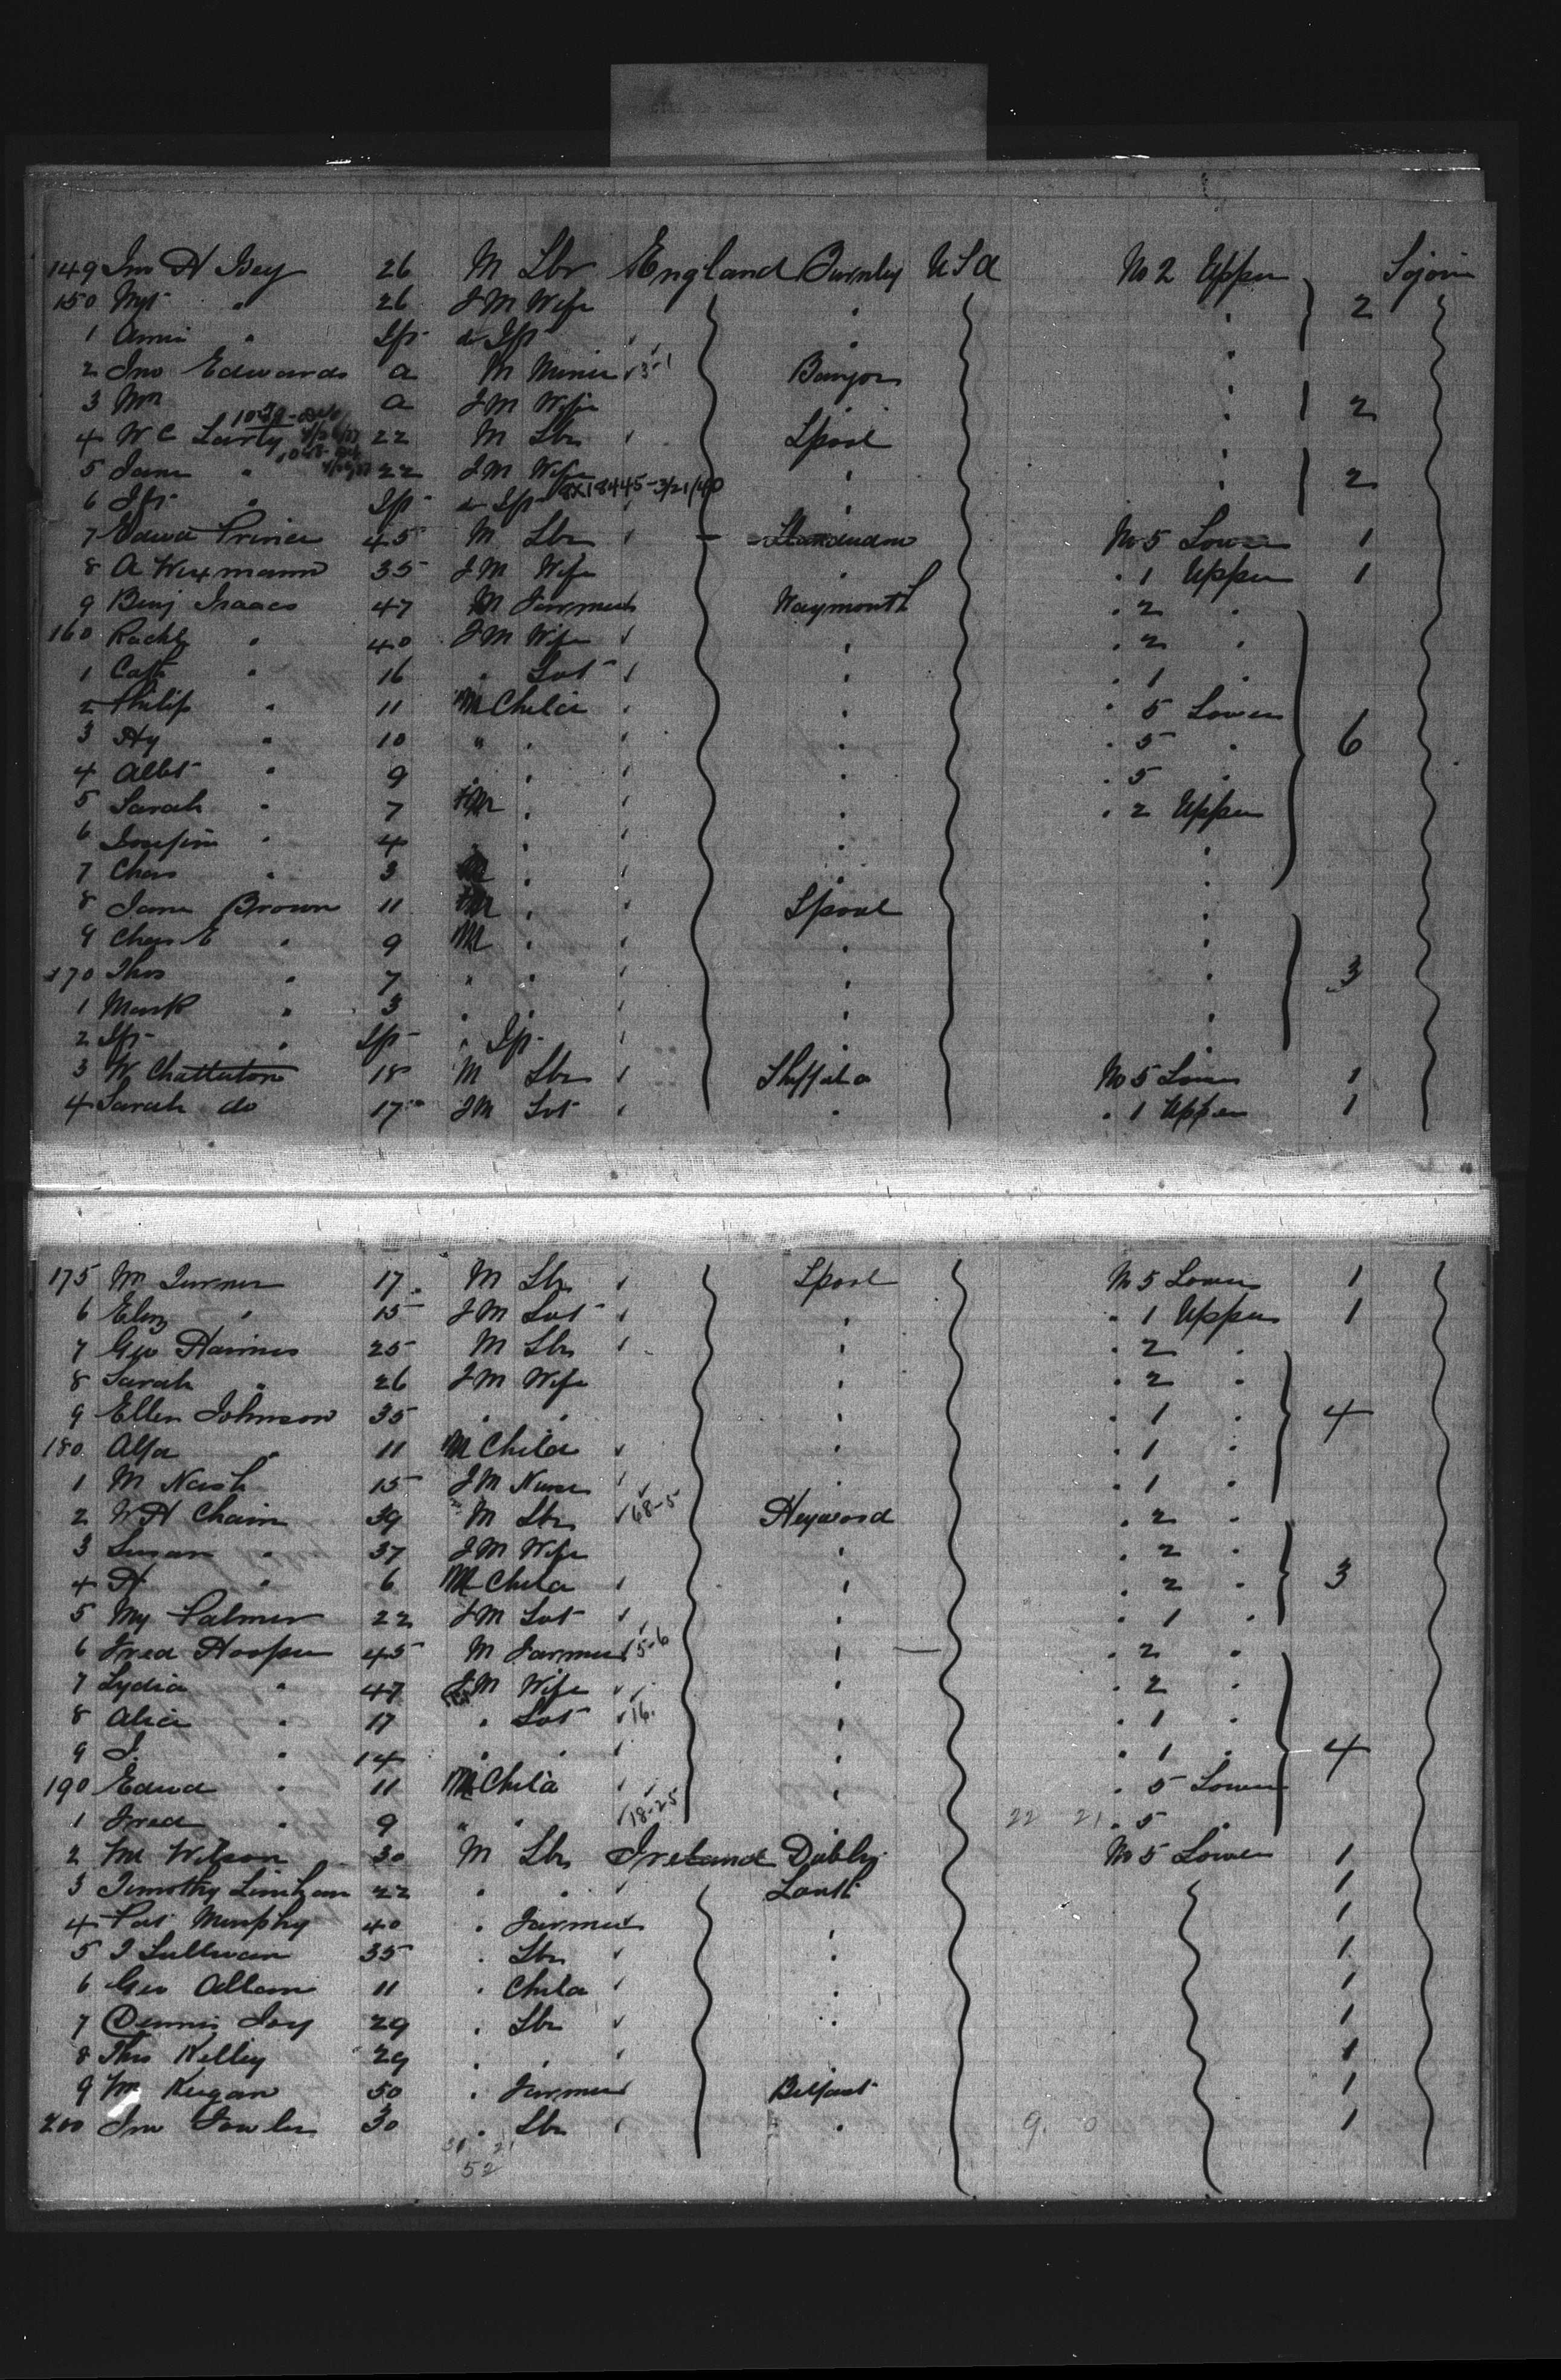 149 Jno H Isey 26 M Lbr England Burnley USA No 2 Upper Sojorn
150 Mgt " 26 FM Wife " " 2
1 Annie " Ift do Ift " "
2 Jno Edwards a M Miner 3-1 Bangor "
3 Mrs a FM Wife " 2
4 W C Larty 22 M Lbr Lpool "
5 Jane " 22 FM Wife " " 2
6 Ift " Ift do Ift 8X18445-3/21/40
7 Edwd Prince 45 M Lbr No 5 Lower 1
8 A Wexmann 35 FM Wife " " 1 Upper 1
9 Benj Isaacs 47 M Farmer Waymouth " 2 "
160 Rachl " 40 FM Wife " " 2 "
1 Cath " 16 " Svt " " 1 "
2 Philip " 11 M Child " " 5 Lower
3 Hy " 10 " " " " 5 " 6
4 Albt " 9 " " " " 5 "
5 Sarah " 7 FM " " " 2 Upper
6 Josefin " 4 " " " "
7 Chas " 3 M " "
8 Jane Brown 11 FM " Lpool "
9 Chas E " 9 M " " "
170 Thos " 7 " " " " 3
1 Mark " 3 " " " "
2 Ift " Ift " Ift " "
3 W Chatterton 18 M Lbr Sheffield No 5 Lower 1
4 Sarah do 17 FM Svt " " 1 Upper 1
175 Wm Turner 17 M Lbr Lpool No 5 Lower 1
6 Eliz " 15 FM Svt " " 1 Upper 1
7 Geo Haines 25 M Lbr " " 2 "
8 Sarah " 26 FM Wife " " 2 "
9 Ellen Johnson 35 " " " " 1 " 4
180 Alfd " 11 M Child " " 1 "
1 M Nash 15 FM Nurse " " 1 "
2 W H Chain 39 M Lbr 68-5 Heywood " 2 "
3 Susan " 37 FM Wife " " 2 "
4 H " 6 M Child " " 2 " 3
5 My Palmer 22 FM Svt " " 1 "
6 Fred Hooper 45 M Farmer 5-6 " " 2 "
7 Lydia " 47 FM Wife " " 2 "
8 Alice " 17 " Svt 16 " " 1 "
9 J. " 14 " " " " 1 " 4
190 Edwd " 11 M Child " " 5 Lower
1 Fred " 9 " " 18-25 22 21 " 5 "
2 Wm Wilson 30 M Lbr Ireland Dublin No 5 Lower 1
3 Timothy Linihan 22 " " Louth 1
4 Pat Murphy 40 " Farmer " 1
5 J Sullivan 35 " Lbr " 1
6 Geo Allam 11 " Child " 1
7 Dennis Joy 29 " Lbr " 1
8 Thos Kelley 29 " " 1
9 Wm Keegan 50 " Farmer Belfast 1
200 Jno Fowler 30 " Lbr " 9 0 1
31 21
52